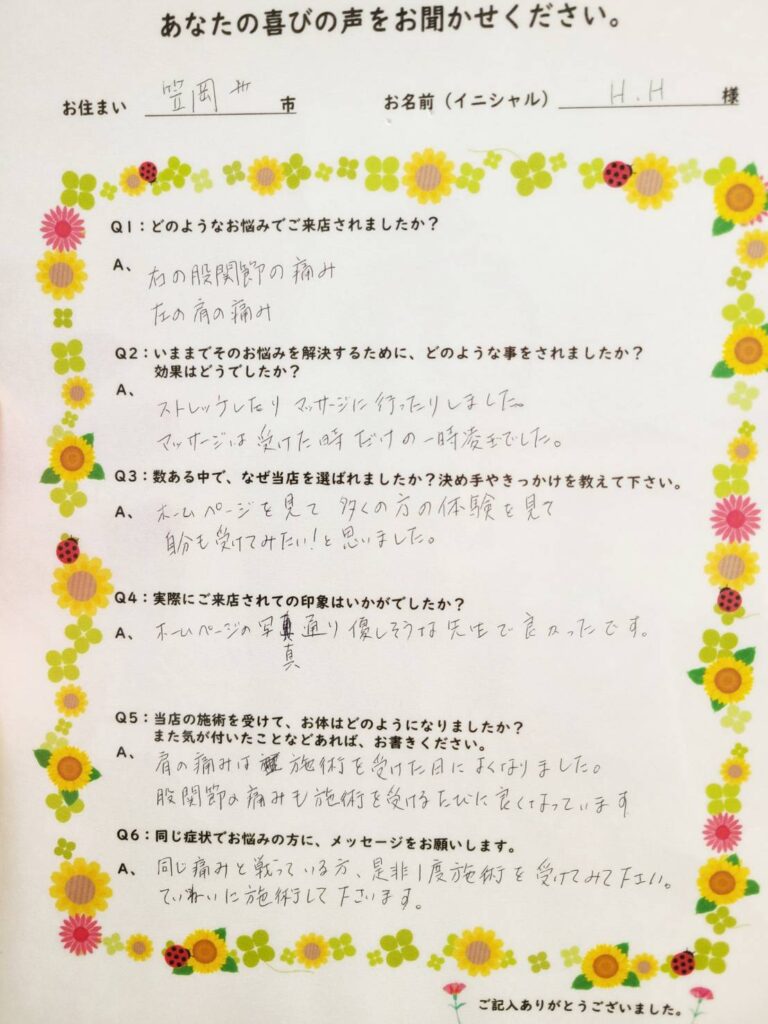 あなたの喜びの声をお聞かせください。
お住まい 笠岡 市 お名前(イニシャル) H.H 様
Q1：どのようなお悩みでご来店されましたか？
A、右の股関節の痛み
左の肩の痛み
Q2：いままでそのお悩みを解決するために、どのような事をされましたか？
効果はどうでしたか？
A、ストレッチしたり マッサージに行ったりしました。
マッサージは受けた時だけの一時凌ぎでした。
Q3：数ある中で、なぜ当店を選ばれましたか？決め手やきっかけを教えて下さい。
A、ホームページを見て 多くの方の体験を見て
自分も受けてみたい！と思いました。
Q4：実際にご来店されての印象はいかがでしたか？
A、ホームページの写真通り優しそうな先生で良かったです。
真
Q5：当店の施術を受けて、お体はどのようになりましたか？
また気が付いたことなどあれば、お書きください。
A、肩の痛みは 施術を受けた日によくなりました。
股関節の痛みも施術を受けるたびに良くなっています
Q6：同じ症状でお悩みの方に、メッセージをお願いします。
A、同じ痛みと戦っている方、是非1度施術を受けてみて下さい。
ていねいに施術して下さいます。
ご記入ありがとうございました。